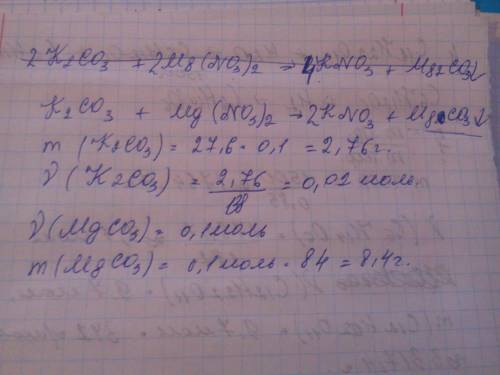 2K2CO3 + 2Mg(NO3)2 → 4KNO3 + Mg2CO3↓
K2CO3 + Mg(NO3)2 → 2KNO3 + MgCO3↓
m(K2CO3) = 27,6 · 0,1 = 2,76г.
ν(K2CO3) = 2,76 / = 0,02 моль
ν(MgCO3) = 0,1 моль
m(MgCO3) = 0,1 моль · 84 = 8,4г.